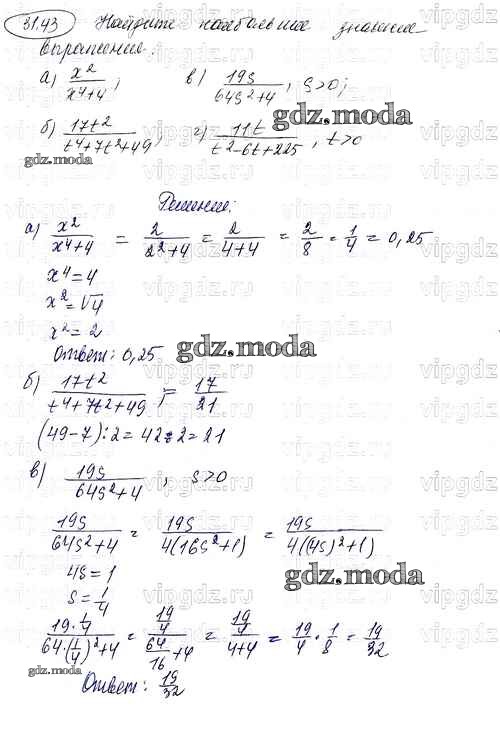 31.43 Найдите наибольшие значения
выражения:
а) x²/(x⁴+4); в) 19s/(64s²+4), s>0;
gdz.moda
б) 17t²/(t⁴+7t²+49); г) 11t/(t²-6t+225), t>0
gdz.moda
Решение:
а) x²/(x⁴+4) = 2/(2²+4) = 2/(4+4) = 2/8 = 1/4 = 0,25
x⁴=4
x²=√4
x²=2
Ответ: 0,25
gdz.moda
б) 17t²/(t⁴+7t²+49) = 17/21
(49-7):2=42:2=21
в) 19s/(64s²+4), s>0
19s/(64s²+4) = 19s/(4(16s²+1)) = 19s/(4((4s)²+1)
4s=1
gdz.moda
s=1/4
(19·1/4)/(64·(1/4)²+4) = (19/4)/(64/16+4) = (19/4)/(4+4) = 19/4·1/8 = 19/32
gdz.moda
Ответ: 19/32
vipgdz.ru